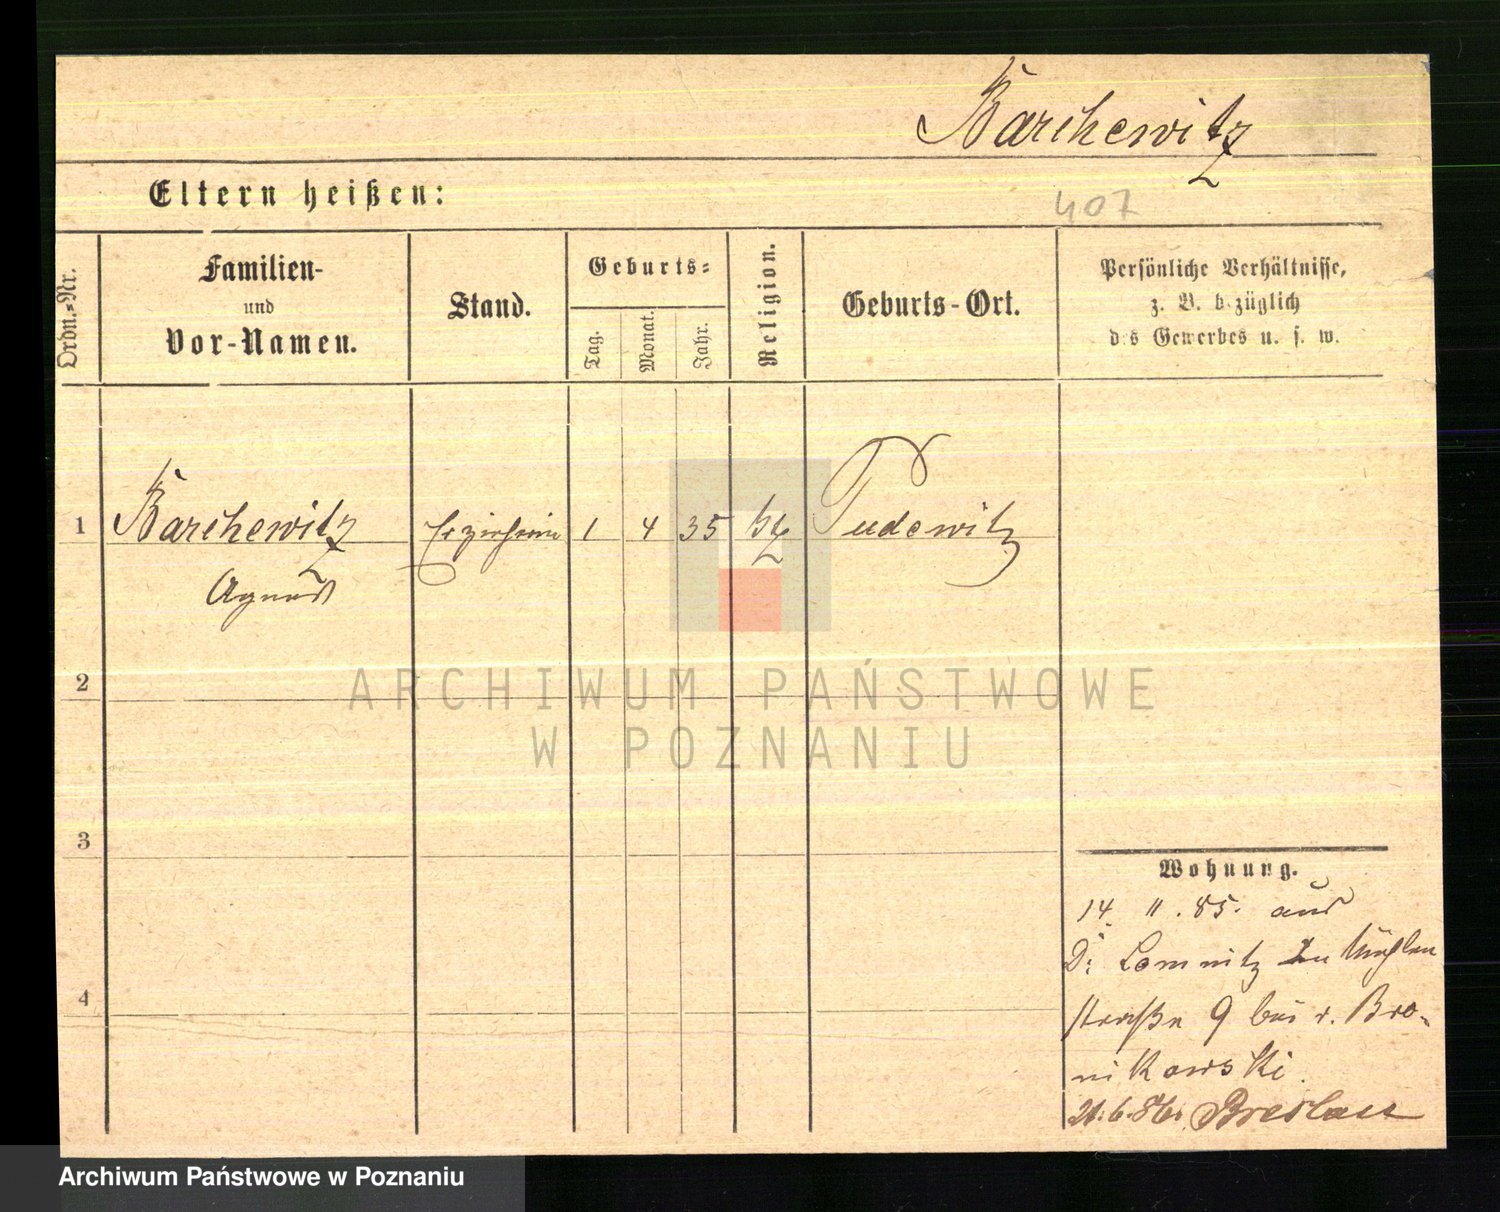 Barchewitz
Eltern heißen:
407
Ordn.-Nr.
Familien-
und
Vor-Namen.
Stand.
Geburts-
Tag.
Monat.
Jahr.
Religion.
Geburts-Ort.
Persönliche Verhältnisse,
z. B. bezüglich
des Gewerbes u. s. w.
1 Barchewitz Erzieherin 1 4 35 Pudewitz
Agnes
2
3
4
Wohnung.
14. 11. 85. aus
Lomnitz Mühlen
straße 9 bei v. Bro-
nikowski.
21.6.86. Breslau
ARCHIWUM PAŃSTWOWE
W POZNANIU
Archiwum Państwowe w Poznaniu